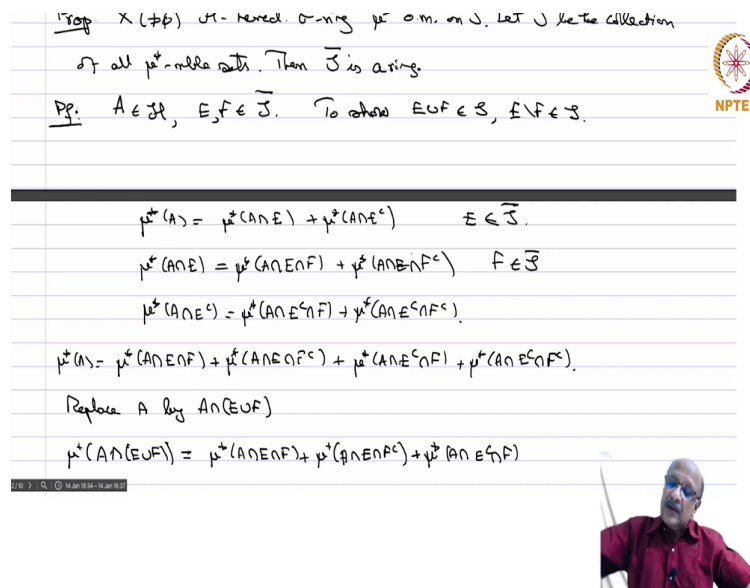 Prop X (≠φ) H- hered. σ-ring μ* o.m. on H. Let S̄ be the collection
of all μ*-mble sets. Then S̄ is a ring.
Pf: A ∈ H, E, F ∈ S̄. To show E∪F ∈ S̄, E\F ∈ S̄.
NPTE
μ*(A) = μ*(A∩E) + μ*(A∩Eᶜ) E ∈ S̄.
μ*(A∩E) = μ*(A∩E∩F) + μ*(A∩E∩Fᶜ) F ∈ S̄
μ*(A∩Eᶜ) = μ*(A∩Eᶜ∩F) + μ*(A∩Eᶜ∩Fᶜ).
μ*(A) = μ*(A∩E∩F) + μ*(A∩E∩Fᶜ) + μ*(A∩Eᶜ∩F) + μ*(A∩Eᶜ∩Fᶜ).
Replace A by A∩(E∪F)
μ*(A∩(E∪F)) = μ*(A∩E∩F) + μ*(A∩E∩Fᶜ) + μ*(A∩Eᶜ∩F)
2/10 14 Jan 18:34 – 14 Jan 18:37